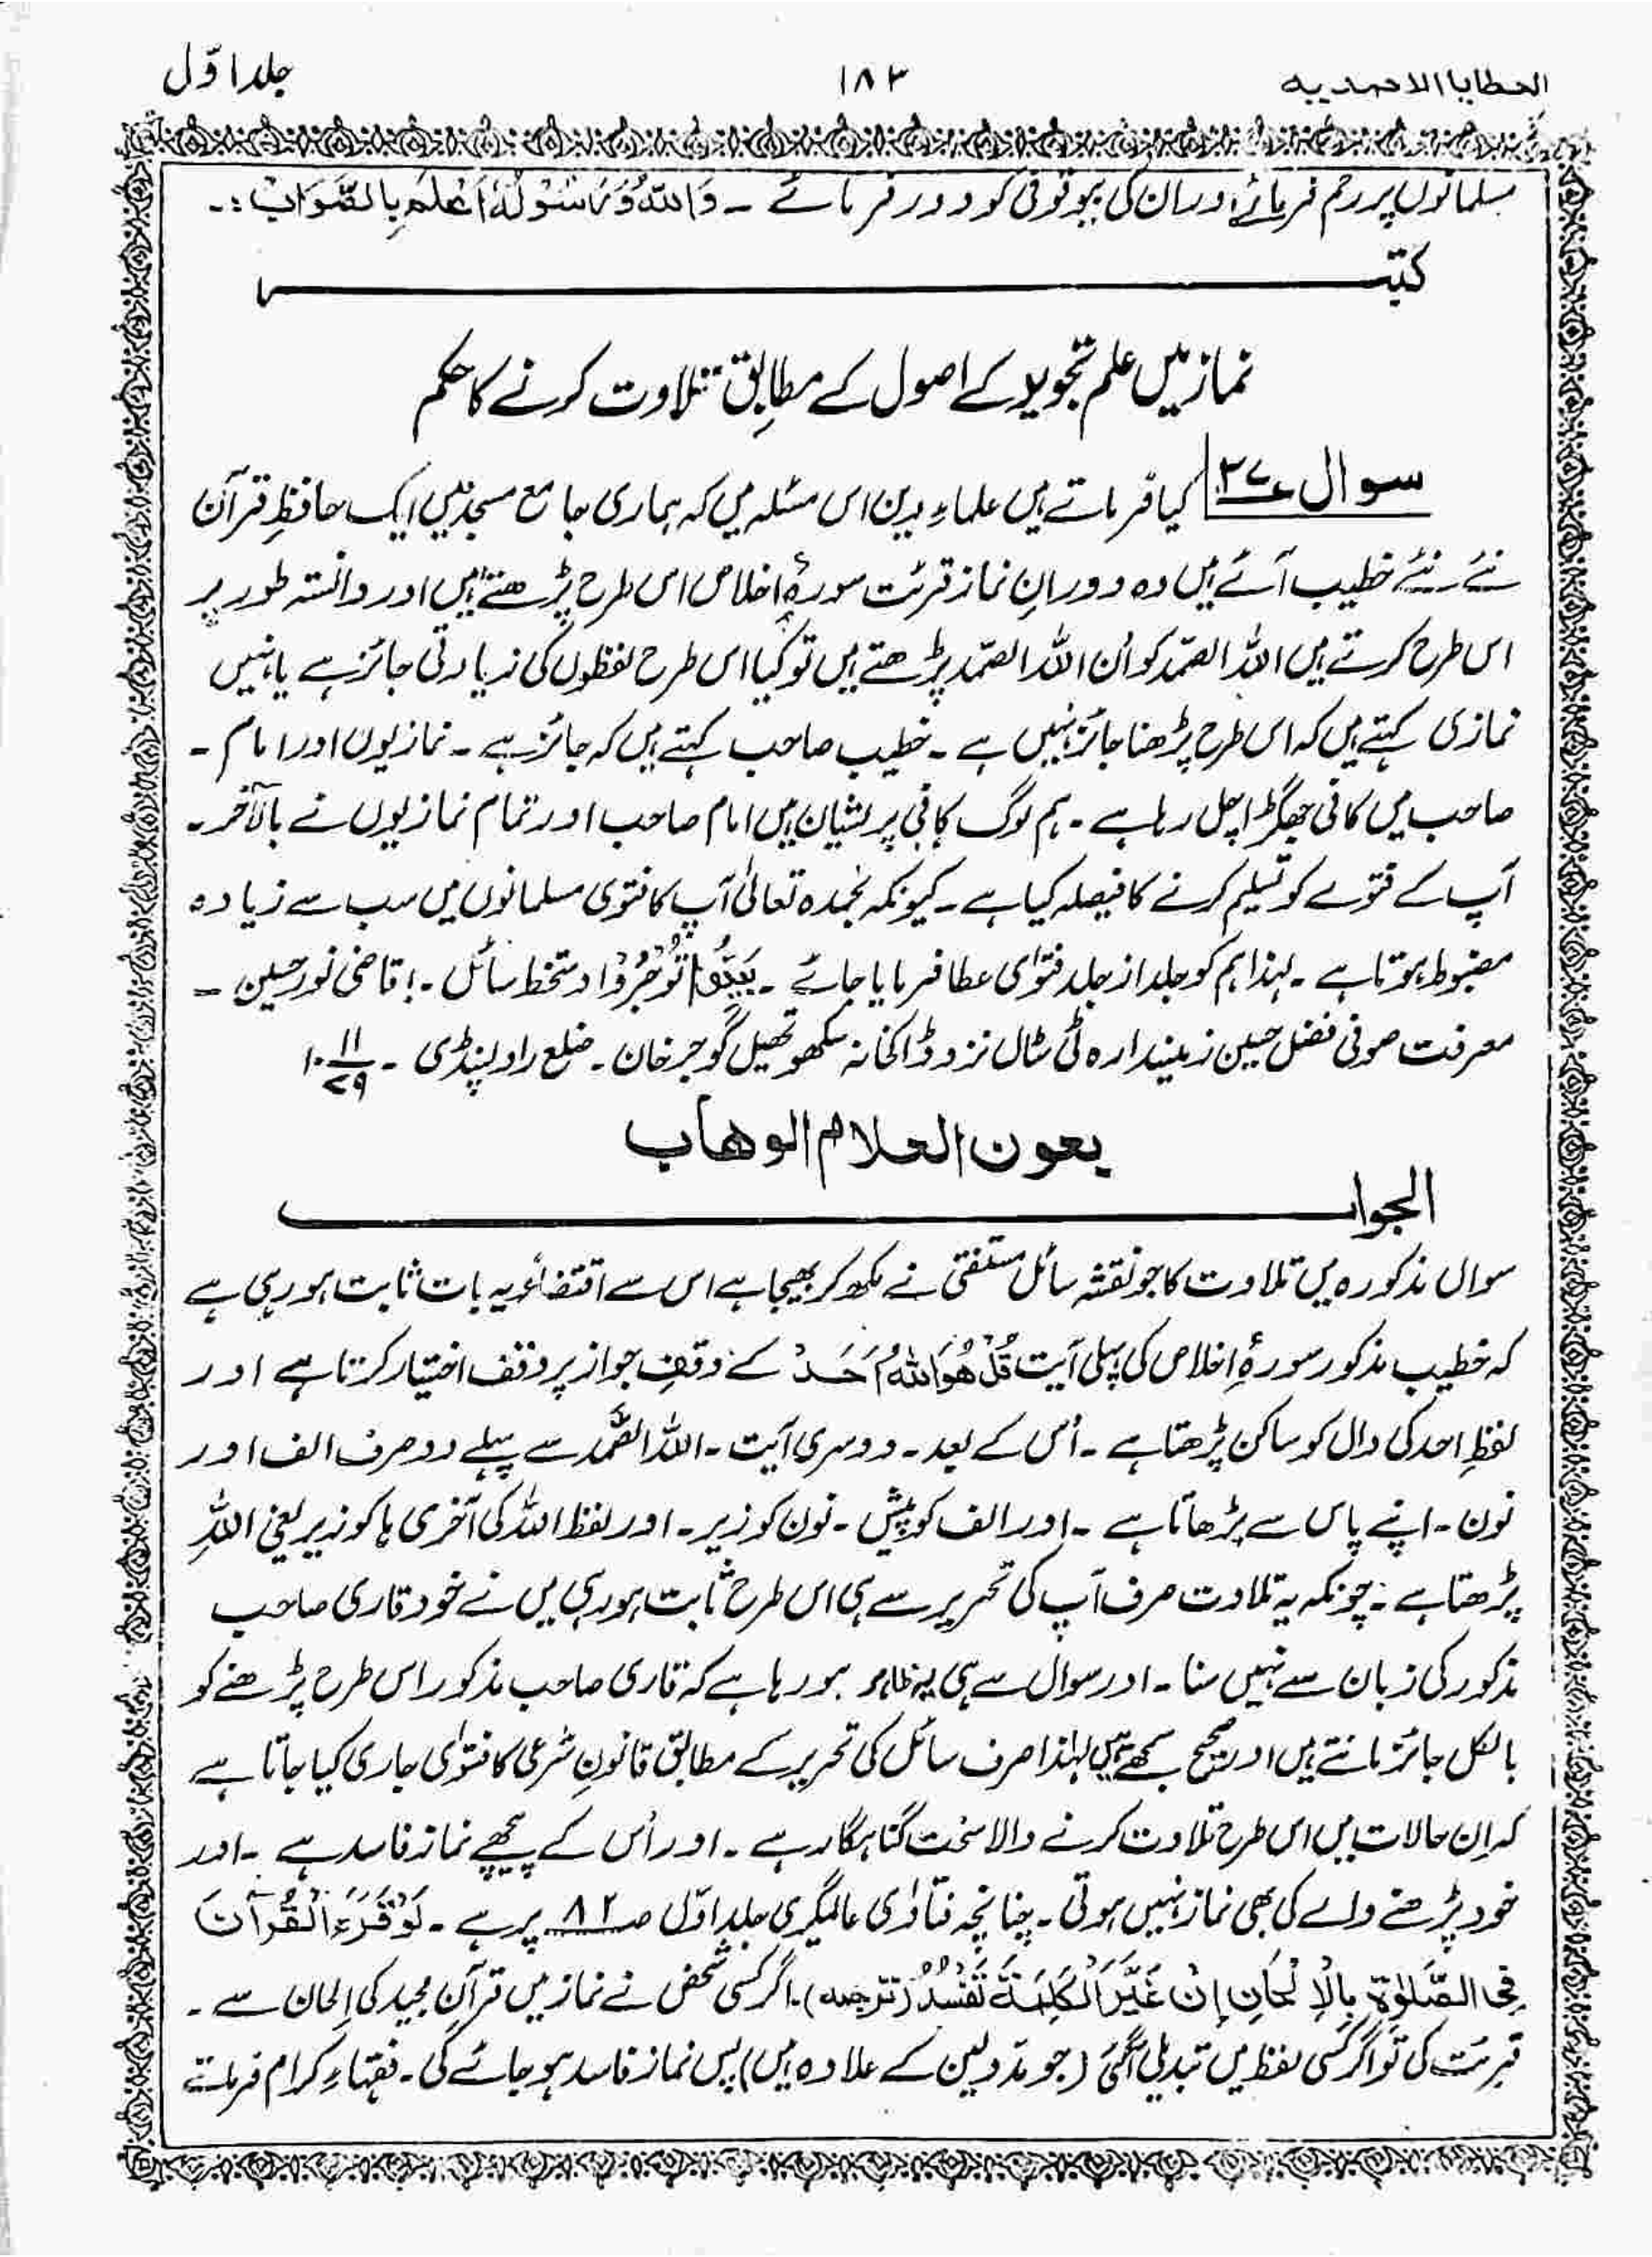 العطایا الاحمدیہ ۱۸۳ جلد اوّل
مسلمانوں پر رحم فرمائے اور ان کی بیوقوفی کو دور فرمائے ۔ وَاللّٰهُ وَرَسُوْلُهٗ اَعْلَمُ بِالصَّوَابْ :۔
کتبہ
نماز میں علم تجوید کے اصول کے مطابِق تلاوت کرنے کا حکم
سوال ۳۷ کیا فرماتے ہیں علماءِ دین اس مسئلہ میں کہ ہماری جامع مسجد میں ایک حافظِ قرآن
نئے نئے خطیب آئے ہیں وہ دورانِ نماز قرئت سورۂ اخلاص اس طرح پڑھتے ہیں اور دانستہ طور پر
اس طرح کرتے ہیں اللہ الصّمد کو اُن اللہ الصّمد پڑھتے ہیں تو کیا اس طرح لفظوں کی زیادتی جائز ہے یا نہیں
نمازی کہتے ہیں کہ اس طرح پڑھنا جائز نہیں ہے ۔ خطیب صاحب کہتے ہیں کہ جائز ہے ۔ نمازیوں اور امام ۔
صاحب میں کافی جھگڑا چل رہا ہے ۔ ہم لوگ کافی پریشان ہیں امام صاحب اور تمام نمازیوں نے بالآخر ۔
آپ کے فتوے کو تسلیم کرنے کا فیصلہ کیا ہے ۔ کیونکہ بحمدہ تعالیٰ آپ کا فتوی مسلمانوں میں سب سے زیادہ
مضبوط ہوتا ہے ۔ لہذا ہم کو جلد از جلد فتوٰی عطا فرمایا جائے ۔ بَیِّنُوْا تُوْجَرُوْا دستخط سائل ۔ قاضی نور حسین ۔
معرفت صوفی فضل حسین زمیندارہ ٹی سٹال نزد ڈاکخانہ سکھو تحصیل گوجر خان ۔ ضلع راولپنڈی ۔ ۱۰/۱۱/۷۹
بعون العلام الوهاب
الجواب
سوال مذکورہ میں تلاوت کا جو نقشہ سائل مستفتی نے لکھ کر بھیجا ہے اس سے اقتضاءً یہ بات ثابت ہو رہی ہے
کہ خطیب مذکور سورۂ اخلاص کی پہلی آیت قُلْ هُوَ اللهُ اَحَدْ کے وقفِ جواز پر وقف اختیار کرتا ہے اور
لفظِ احد کی دال کو ساکن پڑھتا ہے ۔ اُس کے بعد ۔ دوسری آیت ۔ اللہ الصَّمد سے پہلے دو حرف الف اور
نون ۔ اپنے پاس سے بڑھاتا ہے ۔ اور الف کو پیش ۔ نون کو زیر ۔ اور لفظ اللہ کی آخری ہا کو زیر یعنی اللہِ
پڑھتا ہے ۔ چونکہ یہ تلاوت صرف آپ کی تحریر سے ہی اس طرح ثابت ہو رہی میں نے خود قاری صاحب
مذکور کی زبان سے نہیں سنا ۔ اور سوال سے ہی یہ ظاہر ہو رہا ہے کہ قاری صاحب مذکور اس طرح پڑھنے کو
بالکل جائز مانتے ہیں اور صحیح سمجھتے ہیں لہٰذا صرف سائل کی تحریر کے مطابق قانونِ شرعی کا فتوٰی جاری کیا جاتا ہے
کہ اِن حالات میں اس طرح تلاوت کرنے والا سخت گناہگار ہے ۔ اور اُس کے پیچھے نماز فاسد ہے ۔ اور
خود پڑھنے والے کی بھی نماز نہیں ہوتی ۔ چنانچہ فتاوٰی عالمگیری جلد اوّل صـ ۸۲ پر ہے ۔ لَوْ قَرَءَ الْقُرْآنَ
فِی الصَّلٰوةِ بِالْاِلْحَانِ اِنْ غَيَّرَ الْكَلِمَةَ تَفْسُدُ (ترجمہ) ۔ اگر کسی شخص نے نماز میں قرآنِ مجید کی اِلحان سے ۔
قرئت کی تو اگر کسی لفظ میں تبدیلی آگئی (جو مَدّ و لین کے علاوہ ہیں) پس نماز فاسد ہو جائے گی ۔ فقہاءِ کرام فرماتے